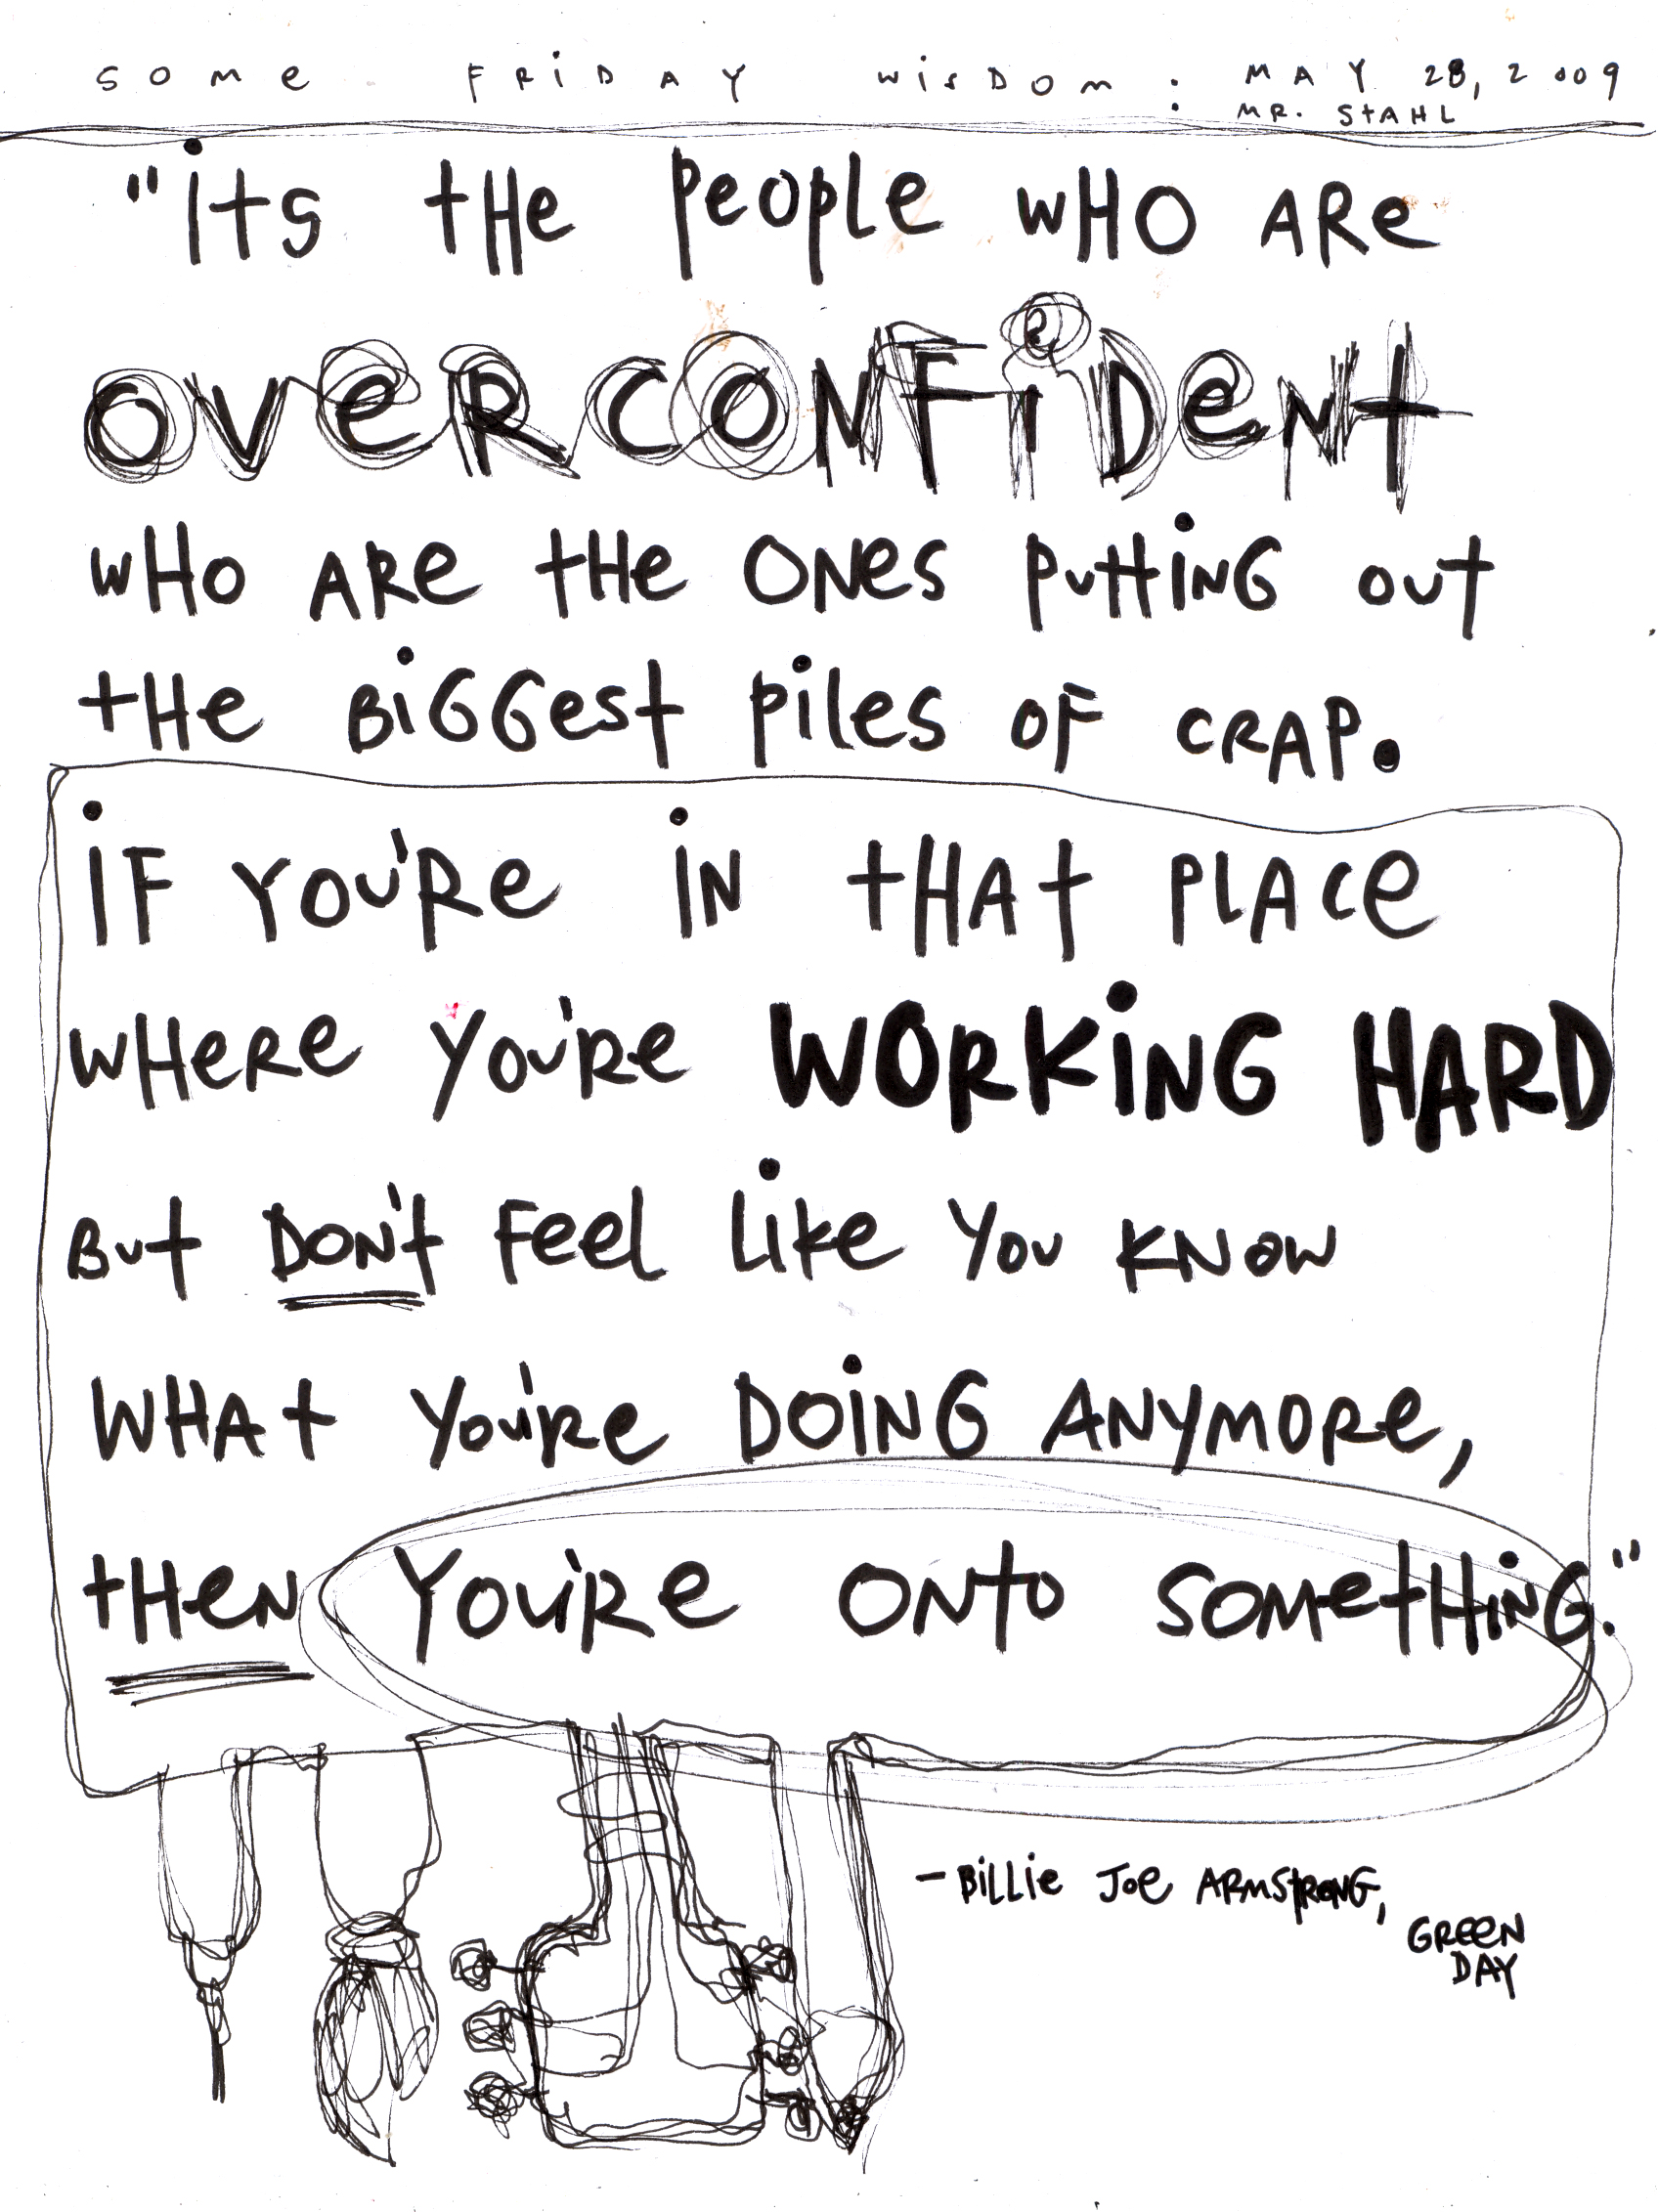 some FRiDAY wisDom: MAY 28, 2009
MR. StAHL
"its tHe peoplE wHO ARe
OVeRCONFiDeNt
wHo ARe tHe ONes puttiNG out
tHe BiGGest piles OF CRAP.
iF YOU'Re iN tHAt PLACe
wHeRe YOU'Re WORKiNG HARD
But DON't Feel Like You KNow
WHAt You're DOiNG ANYMORe,
tHeN YOU'Re ONto SOMetHiNG."
- BiLLie Joe ARMStRONG,
GReeN
DAY